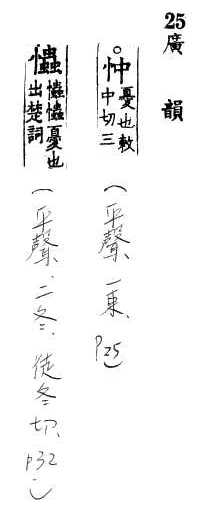 25 廣韻
○忡憂也敕中切三
(平聲、一東、P25)
爞爞爞憂也出楚詞
(平聲、二冬、徒冬切、P32)